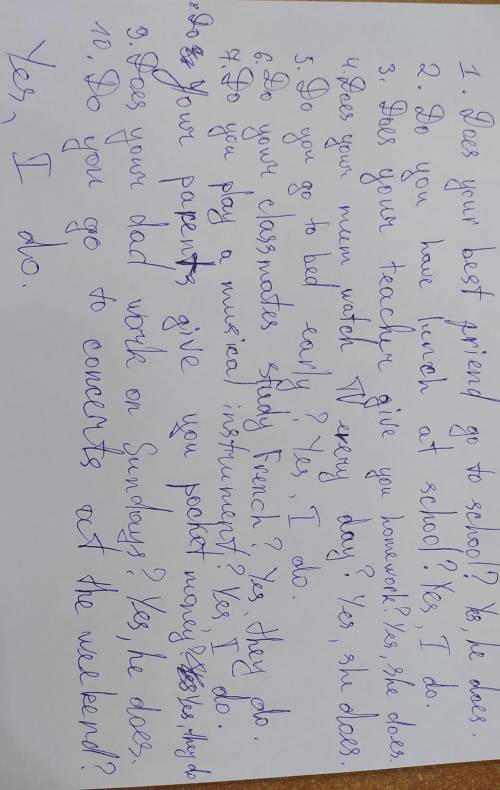 1. Does your best friend go to school? Yes, he does.
2. Do you have lunch at school? Yes, I do.
3. Does your teacher give you homework? Yes, she does.
4. Does your mum watch TV every day? Yes, she does.
5. Do you go to bed early? Yes, I do.
6. Do your classmates study French? Yes, they do.
7. Do you play a musical instrument? Yes, I do.
8. Do your parents give you pocket money? Yes, they do
9. Does your dad work on Sundays? Yes, he does.
10. Do you go to concerts at the weekend?
Yes, I do.